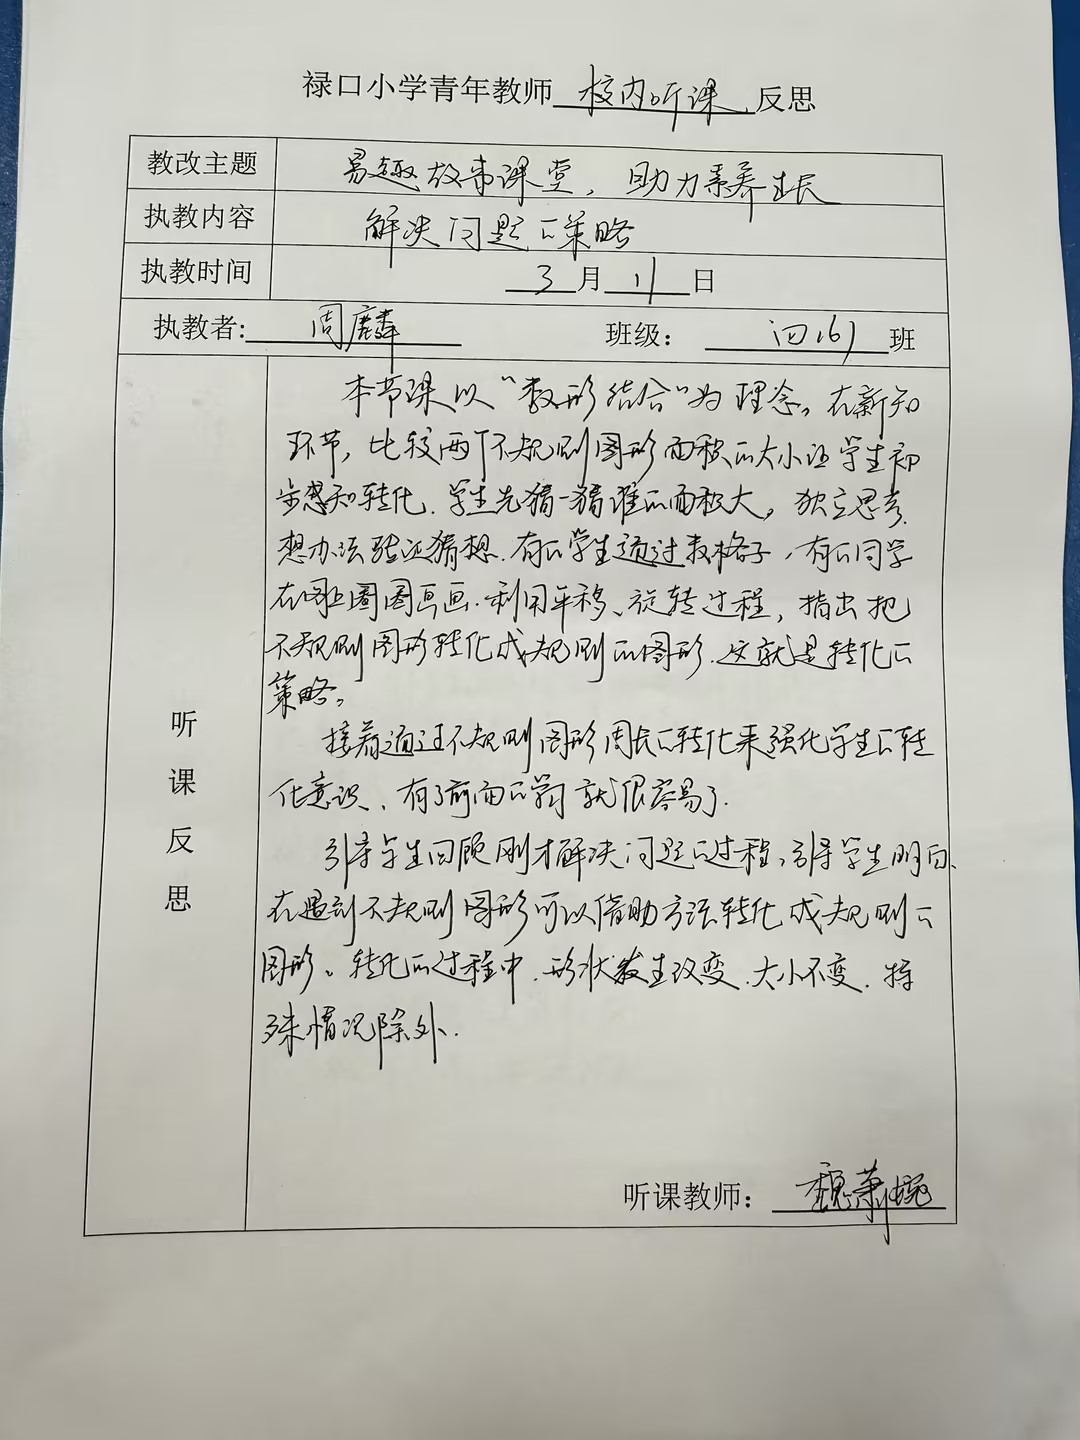 禄口小学青年教师校内听课反思
教改主题 易趣故事课堂，助力素养生长
执教内容 解决问题的策略
执教时间 3月11日
执教者：周麟 班级：四（6）班
听课反思
本节课以“数形结合”为理念。在新知
环节，比较两个不规则图形面积的大小让学生初
步感知转化.学生先猜一猜谁的面积大。独立思考.
想办法验证猜想.有的学生通过数格子，有的同学
在图上圈圈画画.利用平移、旋转过程，指出把
不规则图形转化成规则的图形.这就是转化的
策略。
接着通过不规则图形周长的转化来强化学生的转
化意识、有了前面的学习就很容易了.
引导学生回顾刚才解决问题的过程，引导学生明白、
在遇到不规则图形可以借助方法转化成规则的
图形。转化的过程中.形状发生改变.大小不变.特
殊情况除外.
听课教师：魏萧婉